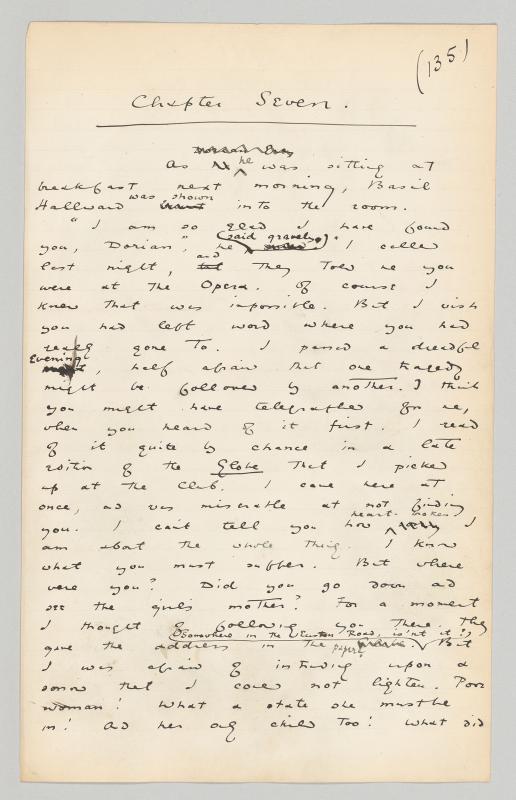 (135)
Chapter Seven.
Dorian Gray
As he was sitting at
breakfast next morning, Basil
was shown
Hallward into the room.
"I am so glad I have found
you, Dorian," he (said gravely.) "I called
and
last night, they told me you
were at the Opera. Of course I
knew that was impossible. But I wish
you had left word where you had
really gone to. I passed a dreadful
evening
, half afraid that one tragedy
might be followed by another. I think
you might have telegraphed for me,
when you heard of it first. I read
of it quite by chance in a late
edition of the Globe that I picked
up at the Club. I came here at
once, and was miserable at not finding
heart-broken
you. I can't tell you how I
am about the whole thing. I know
what you must suffer. But where
were you? Did you go down and
see the girl's mother? For a moment
I thought of following you there. They
(Somewhere in the Euston Road, isn't it?)
gave the address in the paper. But
I was afraid of intruding upon a
sorrow that I could not lighten. Poor
woman! What a state she must be
in! And her only child too! What did